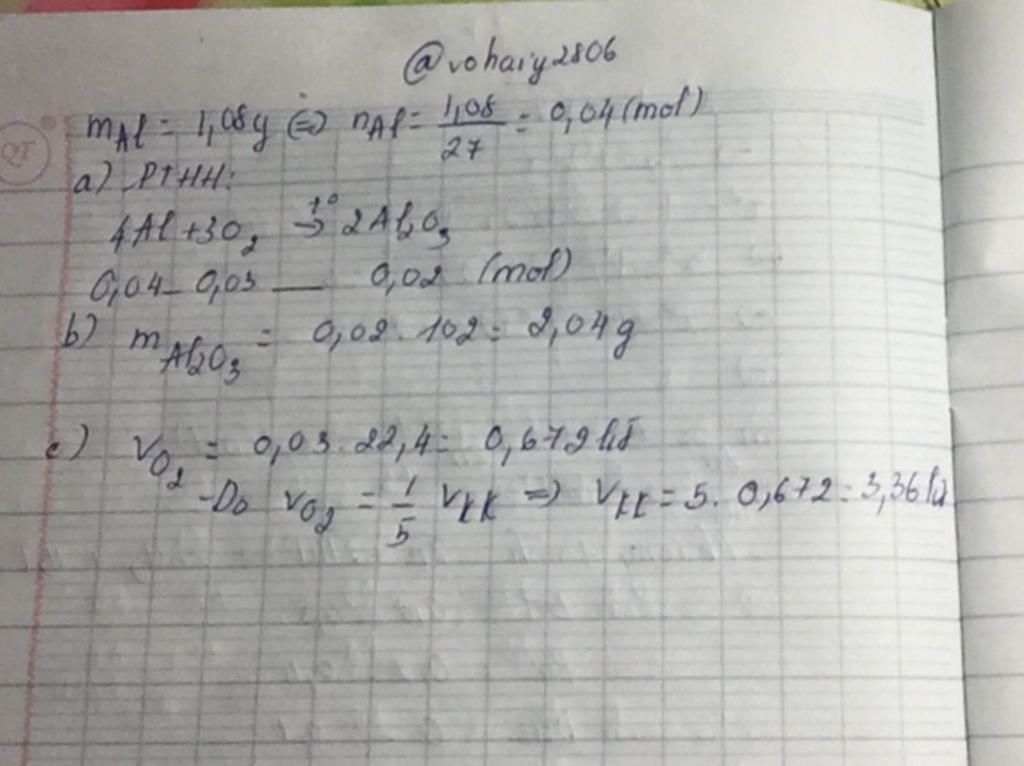 @vohaiy2806
mAl = 1,08g (=) nAl = 1,08/27 = 0,04 (mol)
a) PTHH:
4Al + 3O2 t°→ 2Al2O3
0,04 _ 0,03 __ 0,02 (mol)
b) mAl2O3 = 0,02 . 102 = 2,04g
c) VO2 = 0,03 . 22,4 = 0,672 lít
- Do VO2 = 1/5 Vkk => Vkk = 5 . 0,672 = 3,36 lít